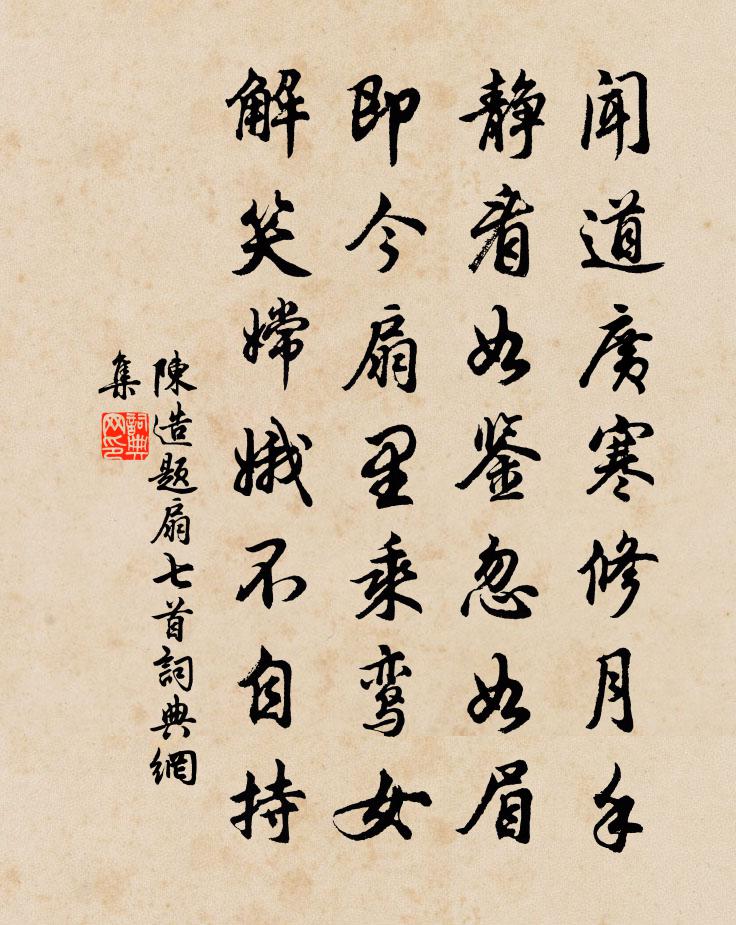 闻道广寒修月手
静看如鉴忽如眉
即今扇里乘鸾女
解笑嫦娥不自持
陳造題扇七首詞典網
集
詞典
网印